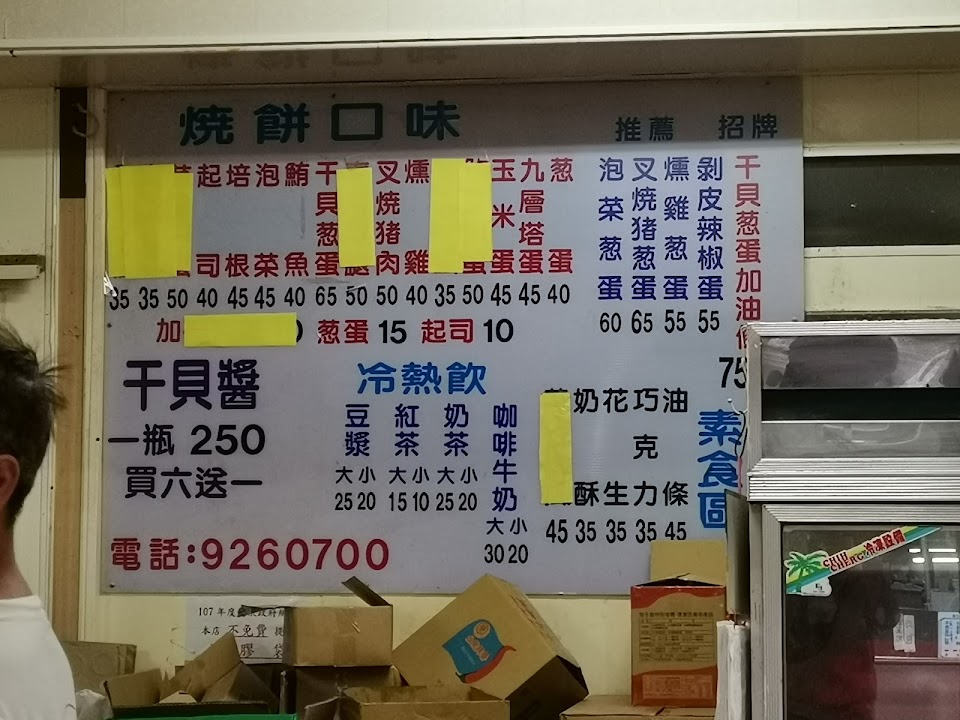 燒餅口味
推薦 招牌
起司
培根
泡菜
鮪魚
干貝葱蛋
叉燒豬肉
燻雞
玉米蛋
九層塔蛋
葱蛋
35 35 50 40 45 45 40 65 50 50 40 35 50 45 45 40
泡菜葱蛋
叉燒豬葱蛋
燻雞葱蛋
剝皮辣椒蛋
干貝葱蛋加油條
60 65 55 55
75
加 葱蛋 15 起司 10
干貝醬
一瓶 250
買六送一
冷熱飲
豆漿
紅茶
奶茶
咖啡牛奶
大小 大小 大小
25 20 15 10 25 20
大小
30 20
奶酥
花生
巧克力
油條
45 35 35 35 45
素食區
電話:9260700
107年度
本店 不免費 提
膠 袋
CHIH CHERG 冷凍設備